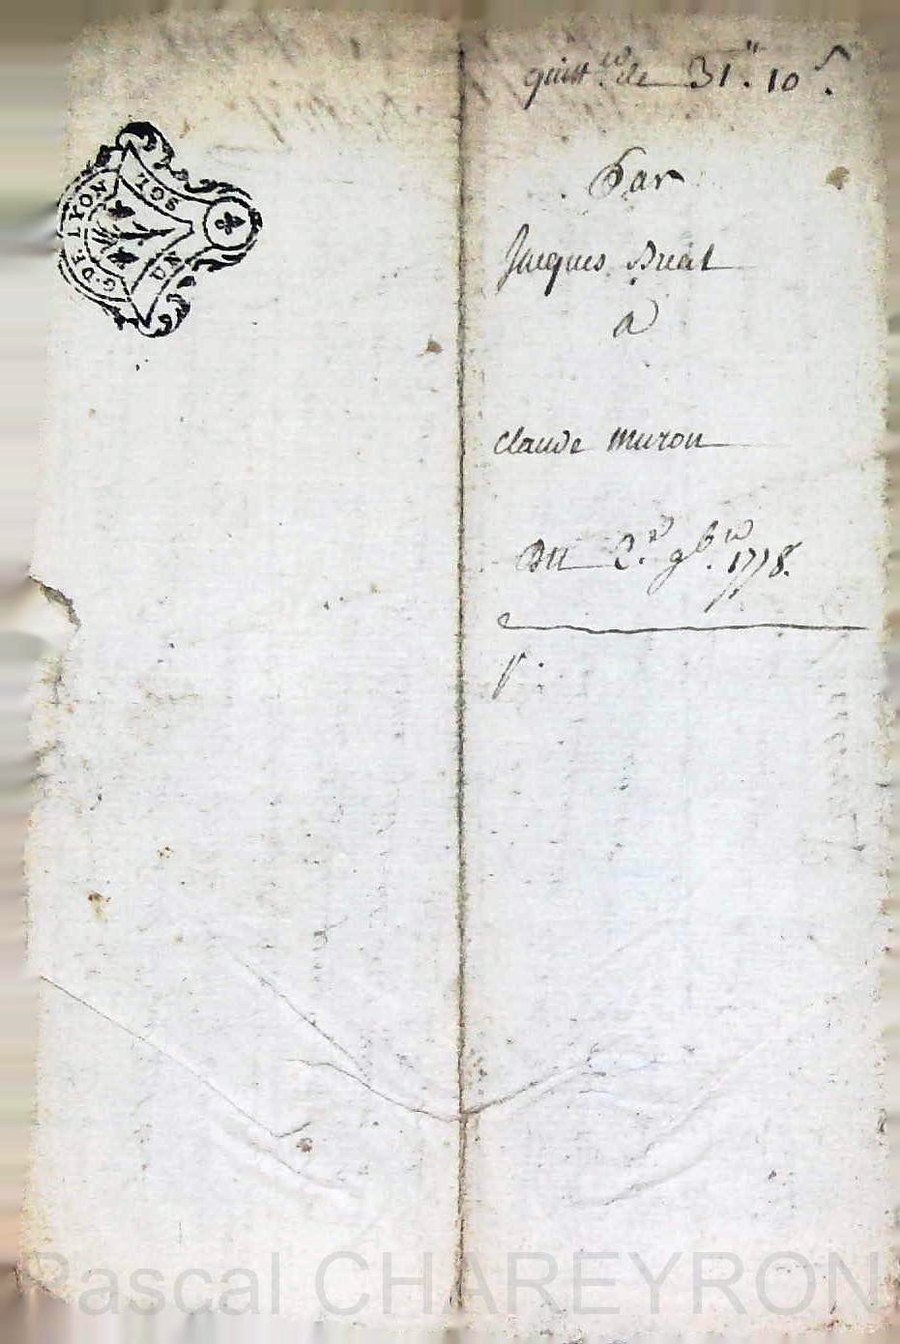 quitt.ce de 31". 10 s.
Par
Jacques Buat
a
Claude Muron
Du 2.e 9b.re 1778.
G. DE LYON
UN SOL
Pascal CHAREYRON